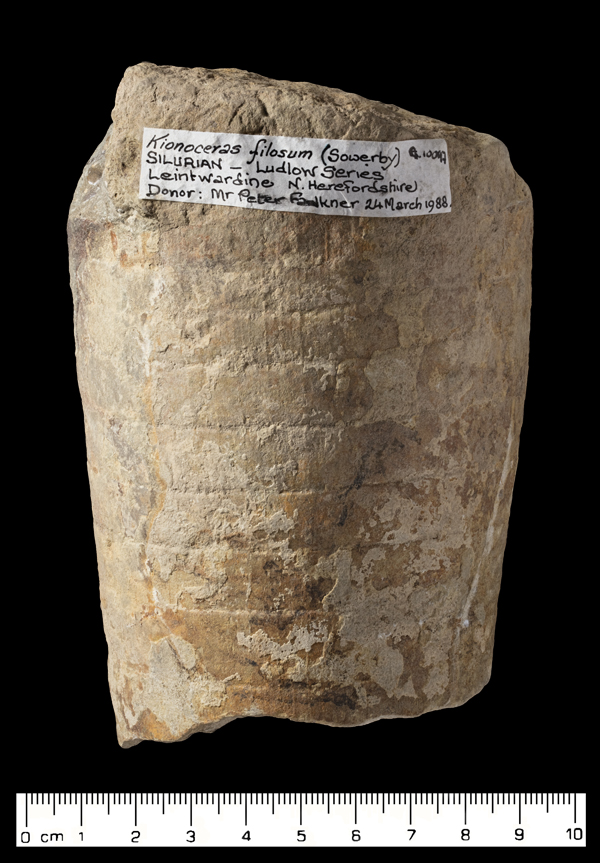 Kionoceras filosum (Sowerby)
SILURIAN – Ludlow Series
Leintwardine N. Herefordshire
Donor: Mr Peter Faulkner 24 March 1988.
0 cm 1 2 3 4 5 6 7 8 9 10